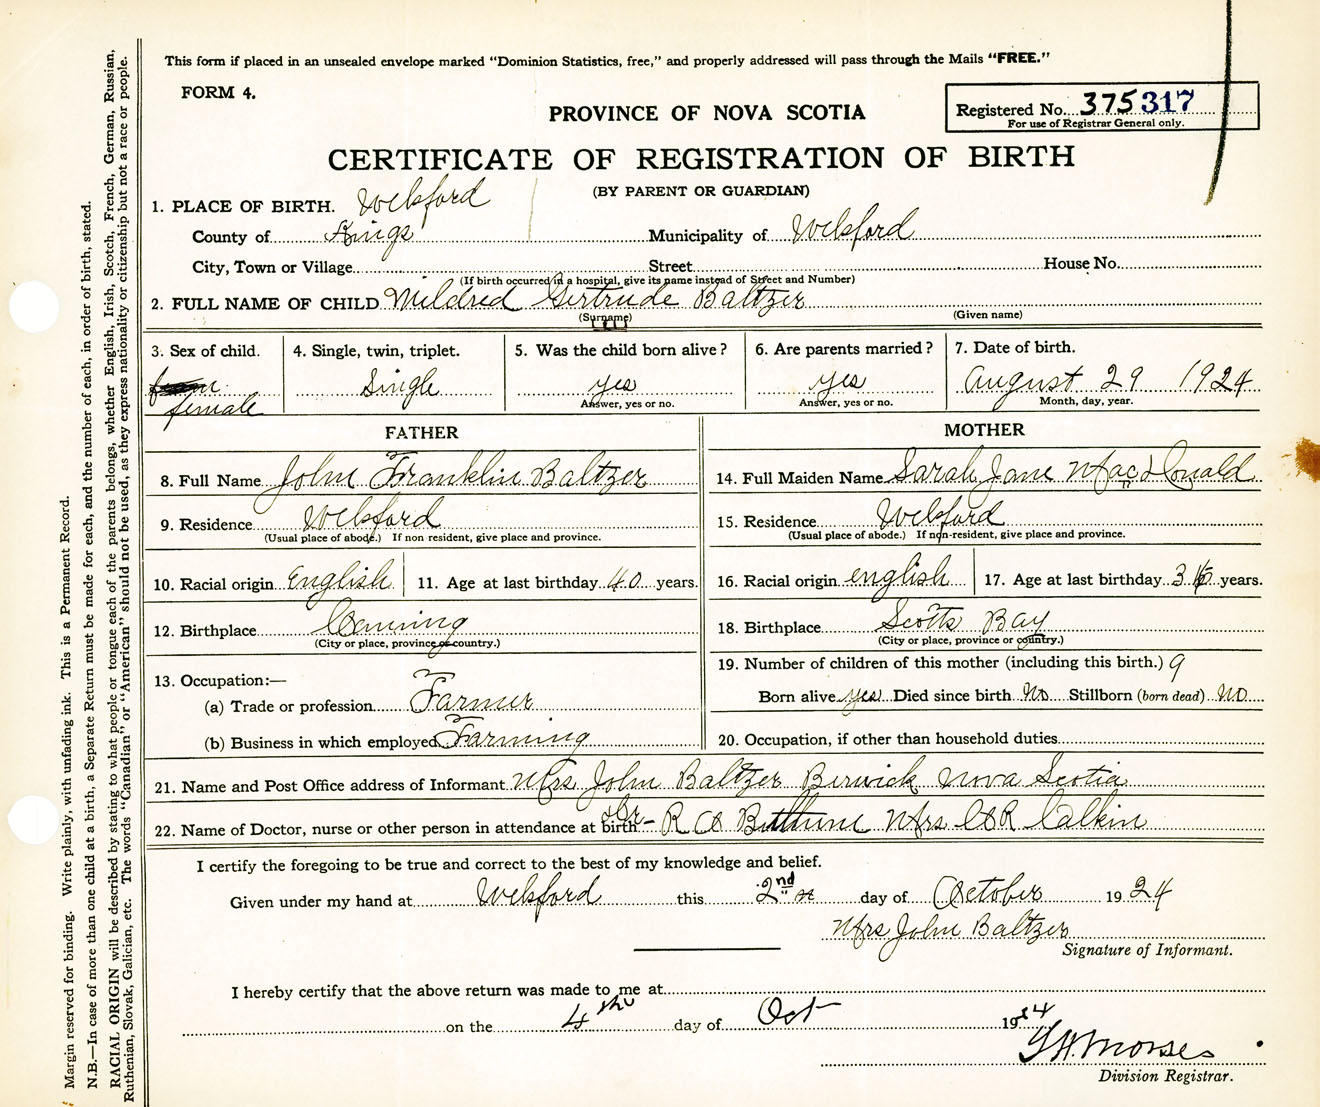 This form if placed in an unsealed envelope marked "Dominion Statistics, free," and properly addressed will pass through the Mails "FREE."
FORM 4.
PROVINCE OF NOVA SCOTIA
Registered No. 375317
For use of Registrar General only.
CERTIFICATE OF REGISTRATION OF BIRTH
(BY PARENT OR GUARDIAN)
1. PLACE OF BIRTH. Welsford
County of Kings Municipality of Welsford
City, Town or Village Street House No.
(If birth occurred in a hospital, give its name instead of Street and Number)
2. FULL NAME OF CHILD Mildred Gertrude Baltzer
(Surname) (Given name)
3. Sex of child. 4. Single, twin, triplet. 5. Was the child born alive? 6. Are parents married? 7. Date of birth.
female Single yes yes August 29 1924
Answer, yes or no. Answer, yes or no. Month, day, year.
FATHER
8. Full Name John Franklin Baltzer
9. Residence Welsford
(Usual place of abode.) If non resident, give place and province.
10. Racial origin English 11. Age at last birthday 40 years.
12. Birthplace Canning
(City or place, province or country.)
13. Occupation:—
(a) Trade or profession Farmer
(b) Business in which employed Farming
MOTHER
14. Full Maiden Name Sarah Jane MacDonald
15. Residence Welsford
(Usual place of abode.) If non-resident, give place and province.
16. Racial origin english 17. Age at last birthday 3 years.
18. Birthplace Scotts Bay
(City or place, province or country.)
19. Number of children of this mother (including this birth.) 9
Born alive yes Died since birth No Stillborn (born dead) No
20. Occupation, if other than household duties
21. Name and Post Office address of Informant Mrs John Baltzer Berwick Nova Scotia
22. Name of Doctor, nurse or other person in attendance at birth Dr- R Mrs Calkin
I certify the foregoing to be true and correct to the best of my knowledge and belief.
Given under my hand at Welsford this 2nd day of October 1924
Mrs John Baltzer
Signature of Informant.
I hereby certify that the above return was made to me at
on the 4th day of Oct 1924
Morse
Division Registrar.
Margin reserved for binding. Write plainly, with unfading ink. This is a Permanent Record.
N.B.—In case of more than one child at a birth, a Separate Return must be made for each, and the number of each, in order of birth, stated.
RACIAL ORIGIN will be described by stating to what people or tongue each of the parents belongs, whether English, Irish, Scotch, French, German, Russian,
Ruthenian, Slovak, Galician, etc. The words "Canadian" or "American" should not be used, as they express nationality or citizenship but not a race or people.